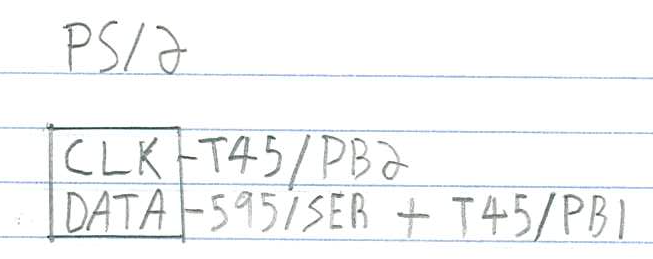 PS/2
CLK -T45/PB2
DATA -595/SER + T45/PB1